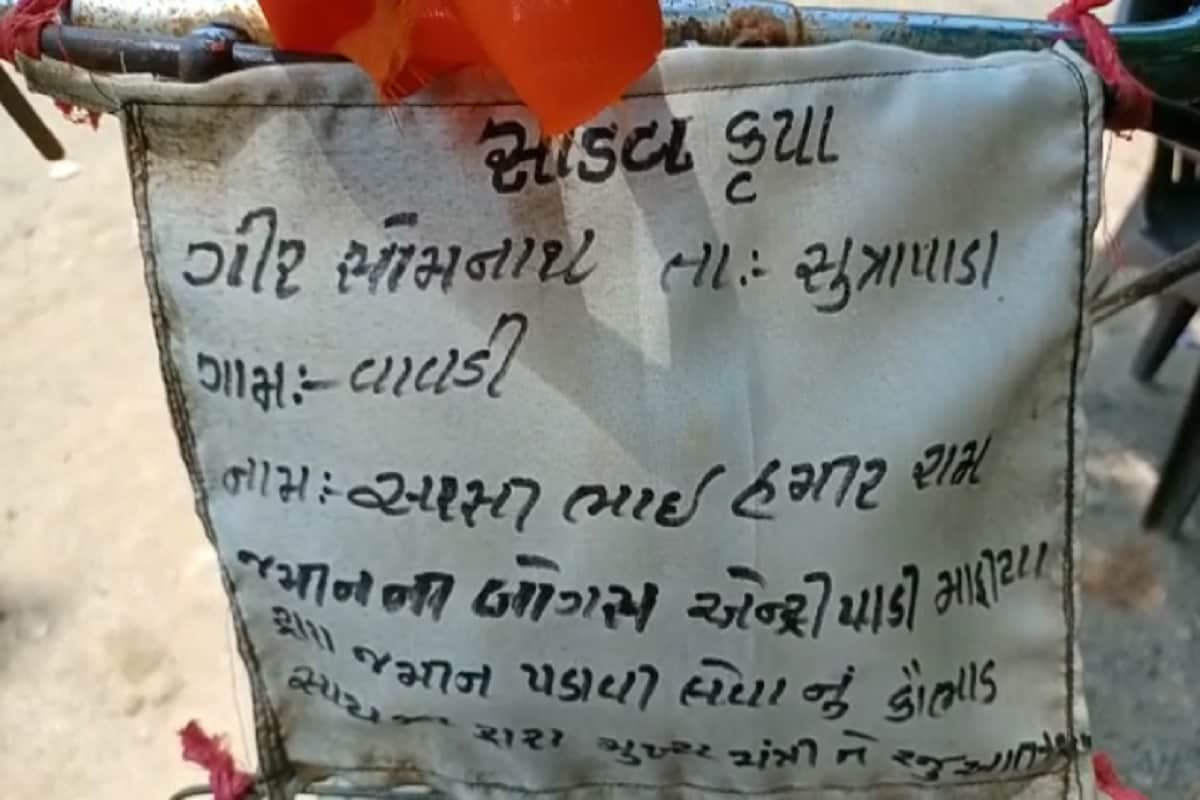 સાઇકલ કૃપા
ગીર સોમનાથ તા:- સુત્રાપાડા
ગામ:- વાવડી
નામ:- અરસી ભાઇ હમીર રામ
જમીનની બોગસ એન્ટ્રી પાડી માફીયા
દ્વારા જમીન પડાવી લેવા નું કૌભાંડ
મુખ્ય મંત્રી ને રજુઆત